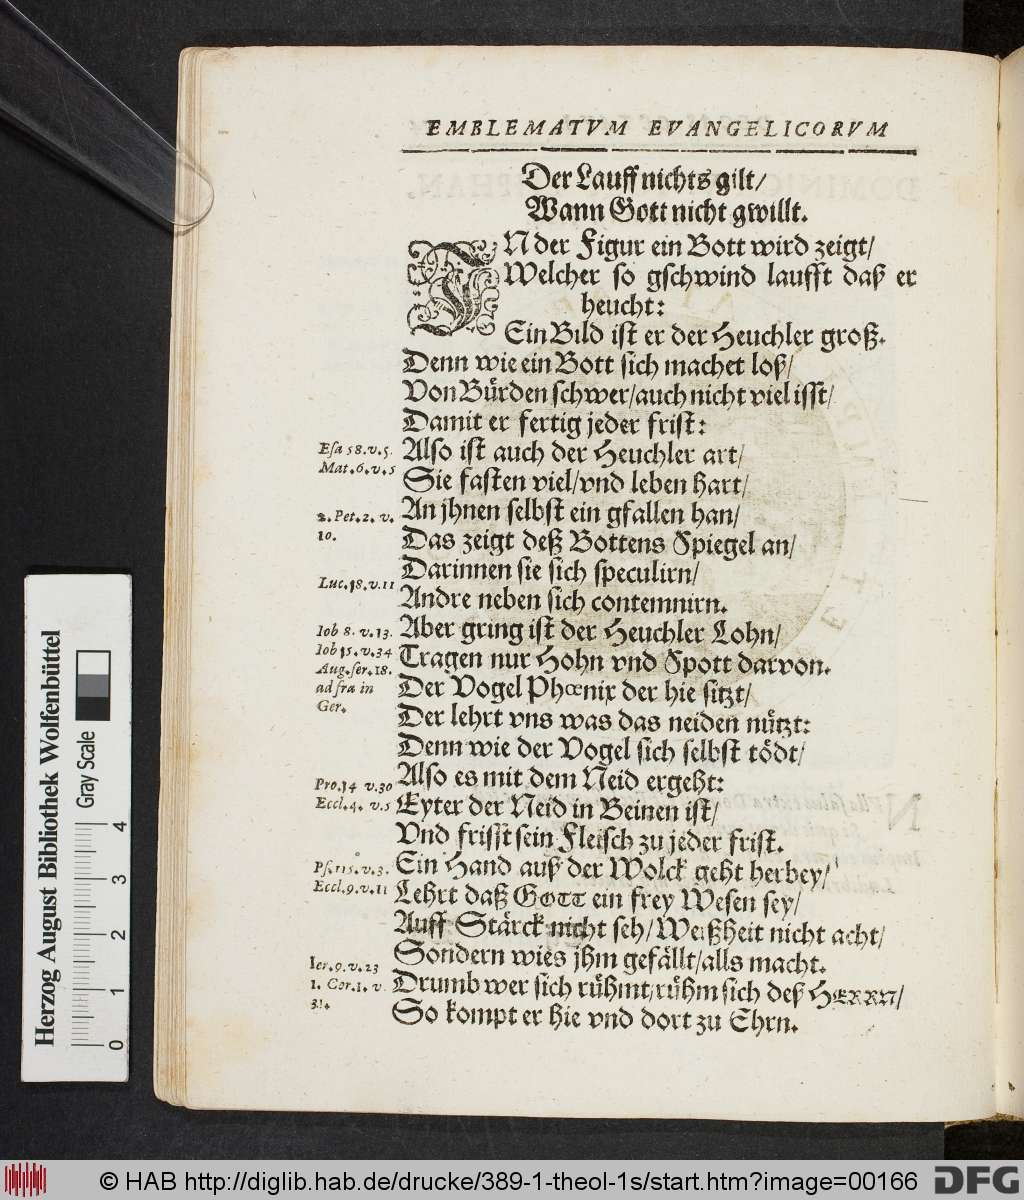 EMBLEMATVM EVANGELICORVM
Der Lauff nichts gilt/
Wann Gott nicht gwillt.
IN der Figur ein Bott wird zeigt/
Welcher so gschwind laufft daß er
heucht:
Ein Bild ist er der Heuchler groß.
Denn wie ein Bott sich machet loß/
Von Bürden schwer/auch nicht viel isst/
Damit er fertig jeder frist:
Esa 58.v.5.
Also ist auch der Heuchler art/
Mat.6.v.5
Sie fasten viel/vnd leben hart/
2.Pet.2.v.
An jhnen selbst ein gfallen han/
10.
Das zeigt deß Bottens Spiegel an/
Darinnen sie sich speculirn/
Luc.18.v.11
Andre neben sich contemnirn.
Iob 8.v.13.
Aber gring ist der Heuchler Lohn/
Iob 15.v.34
Tragen nur Hohn vnd Spott darvon.
Aug.ser.18.
ad fra in
Der Vogel Phœnix der hie sitzt/
Ger.
Der lehrt vns was das neiden nützt:
Denn wie der Vogel sich selbst tödt/
Also es mit dem Neid ergeht:
Pro.14 v.30
Eccl.4.v.5
Eyter der Neid in Beinen ist/
Vnd frisst sein Fleisch zu jeder frist.
Ps.115.v.3.
Ein Hand auß der Wolck geht herbey/
Eccl.9.v.11
Lehrt daß GOTT ein frey Wesen sey/
Auff Stärck nicht seh/Weißheit nicht acht/
Sondern wies jhm gefällt/alls macht.
Ier.9.v.23
1. Cor.1.v.
Drumb wer sich rühmt/rühm sich deß HERRN/
31.
So kompt er hie vnd dort zu Ehrn.
Herzog August Bibliothek Wolfenbüttel
Gray Scale
0 1 2 3 4
© HAB http://diglib.hab.de/drucke/389-1-theol-1s/start.htm?image=00166
DFG